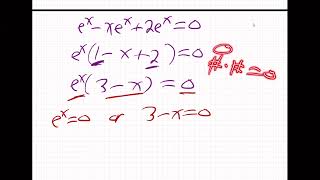 e^x - xe^x + 2e^x = 0
e^x(1 - x + 2) = 0
e^x(3 - x) = 0
e^x = 0 or 3 - x = 0
0
# · # = 0